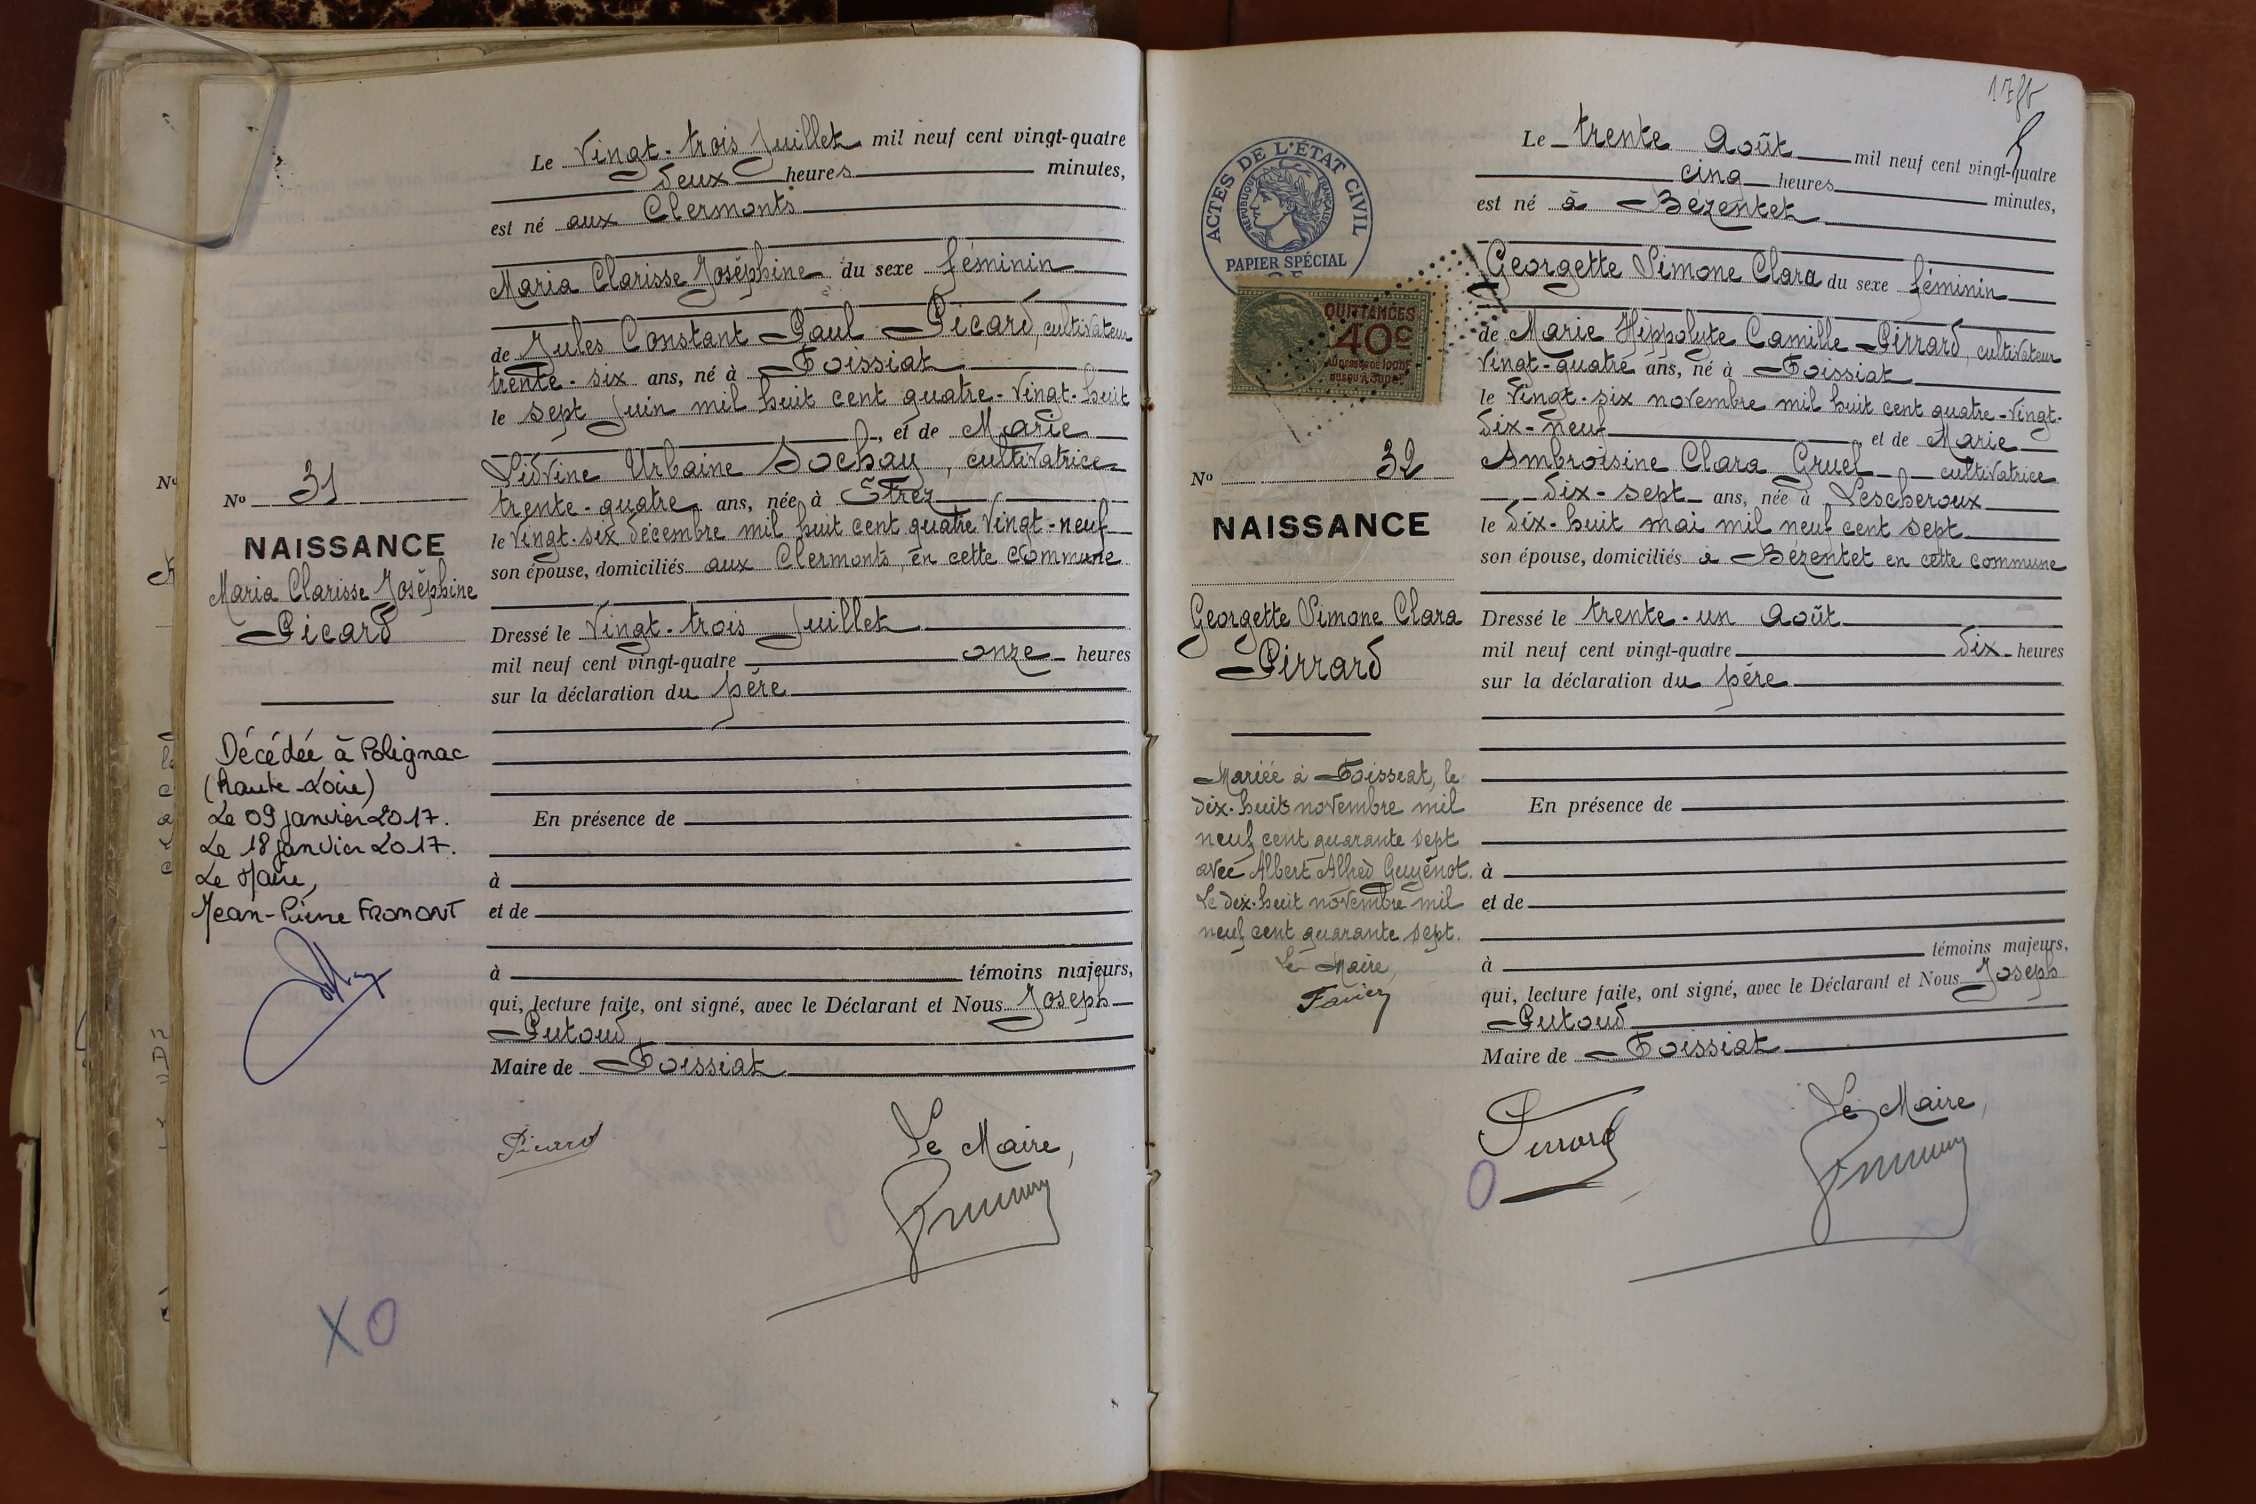 Le Vingt-trois Juillet mil neuf cent vingt-quatre
deux heures minutes,
est né aux Clermonts
Maria Clarisse Joséphine du sexe féminin
de Jules Constant Paul Picard, cultivateur
trente-six ans, né à Foissiat
le sept Juin mil huit cent quatre-vingt-huit
, et de Marie
Lidvine Urbaine Sochay, cultivatrice
trente-quatre ans, née à Etrez
le vingt-six décembre mil huit cent quatre vingt-neuf
son épouse, domiciliés aux Clermonts, en cette commune
Dressé le Vingt-trois Juillet
mil neuf cent vingt-quatre onze heures
sur la déclaration du père
En présence de
à
et de
à témoins majeurs,
qui, lecture faite, ont signé, avec le Déclarant et Nous Joseph
Putoud
Maire de Foissiat
Picard
Le Maire,
No 31
NAISSANCE
Maria Clarisse Joséphine
Picard
Décédée à Polignac
(Haute-Loire)
Le 09 janvier 2017.
Le 18 janvier 2017.
Le Maire,
Jean-Pierre FROMONT
XO
No
ACTES DE L'ÉTAT CIVIL
RÉPUBLIQUE FRANÇAISE
PAPIER SPÉCIAL
QUITTANCES
40c
No 32
NAISSANCE
Georgette Simone Clara
Pirrard
Mariée à Foissiat, le
dix-huit novembre mil
neuf cent quarante sept
avec Albert Alfred Guyénot.
Le dix-huit novembre mil
neuf cent quarante sept.
Le Maire,
Le trente Août mil neuf cent vingt-quatre
cinq heures minutes,
est né à Bézentet
Georgette Simone Clara du sexe féminin
de Marie Hippolyte Camille Pirrard, cultivateur
vingt-quatre ans, né à Foissiat
le Vingt-six novembre mil huit cent quatre-vingt-
dix-neuf et de Marie
Ambroisine Clara Gruel cultivatrice
dix-sept ans, née à Lescheroux
le dix-huit mai mil neuf cent sept
son épouse, domiciliés à Bézentet en cette commune
Dressé le trente-un Août
mil neuf cent vingt-quatre dix heures
sur la déclaration du père
En présence de
à
et de
à témoins majeurs,
qui, lecture faite, ont signé, avec le Déclarant et Nous Joseph
Putoud
Maire de Foissiat
Le Maire,